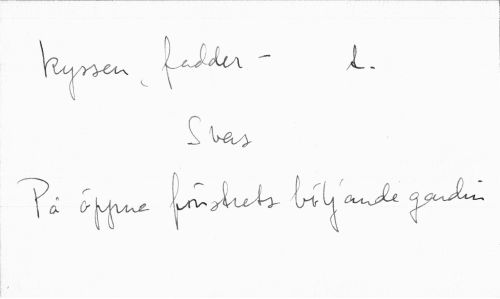 kyssen, fadder - t.
Svas
På öppna fönstrets böljande gardin